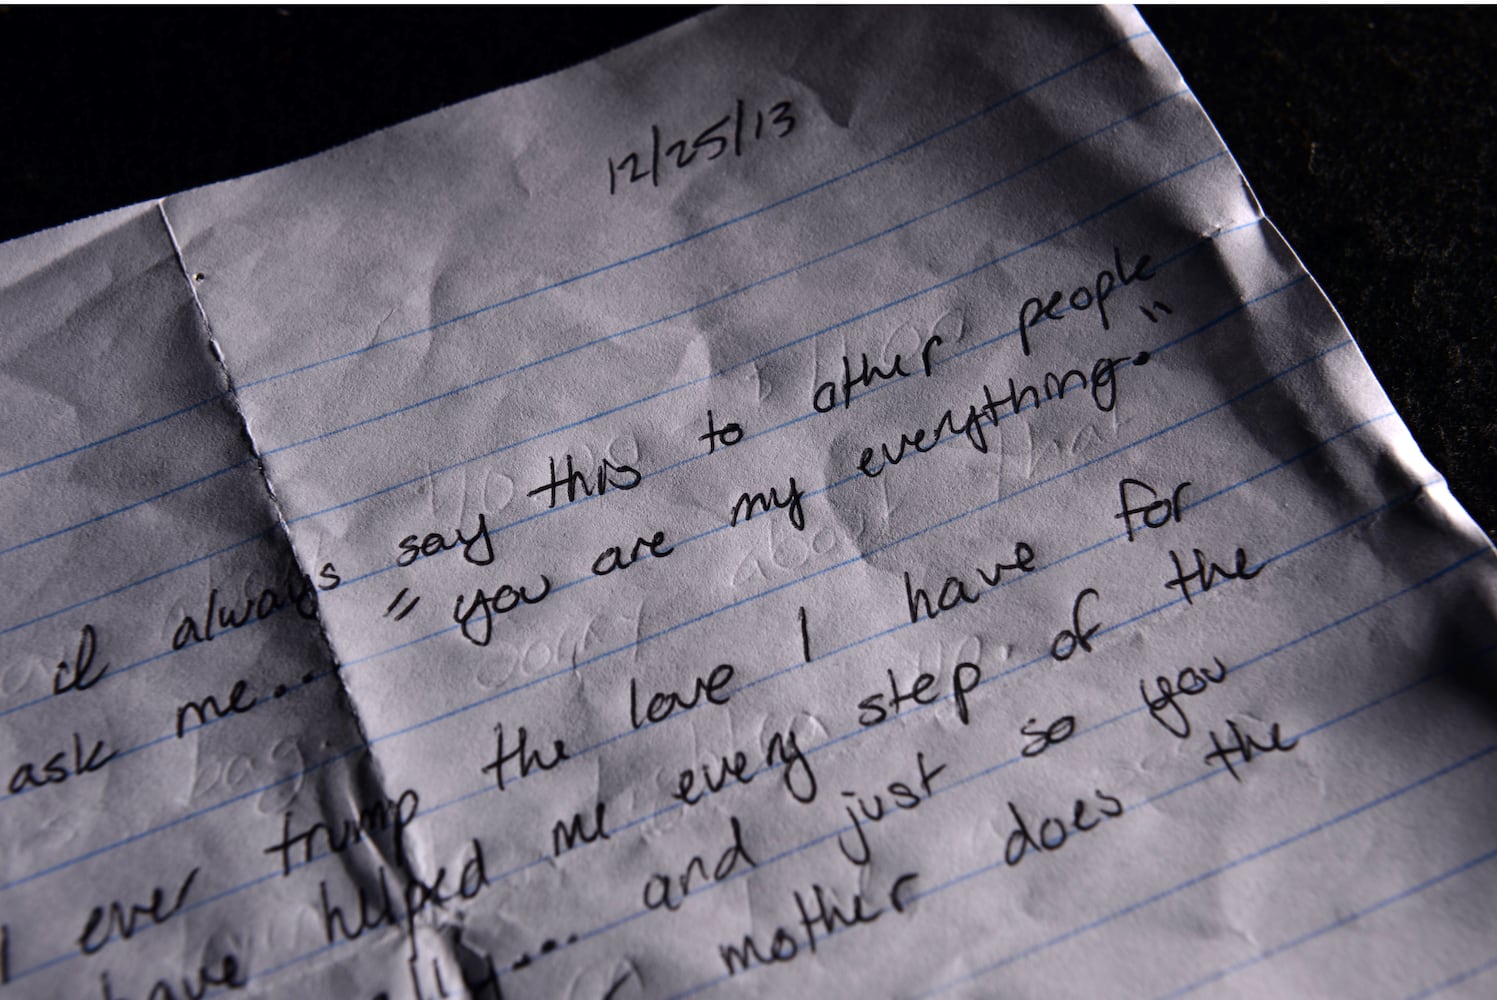 12/25/13
always say this to other people
ask me... "you are my everything."
ever trump the love I have for
have helped me every step of the
and just so you
mother does the